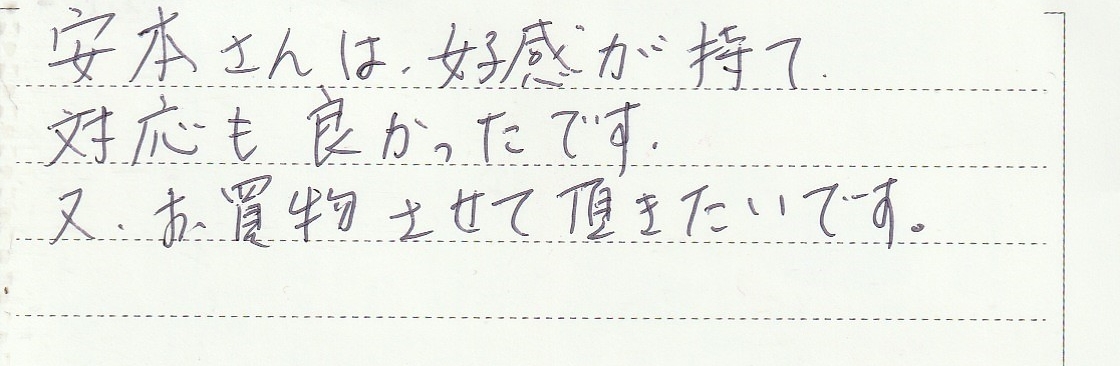 安本さんは、好感が持て
対応も良かったです.
又、お買物させて頂きたいです。